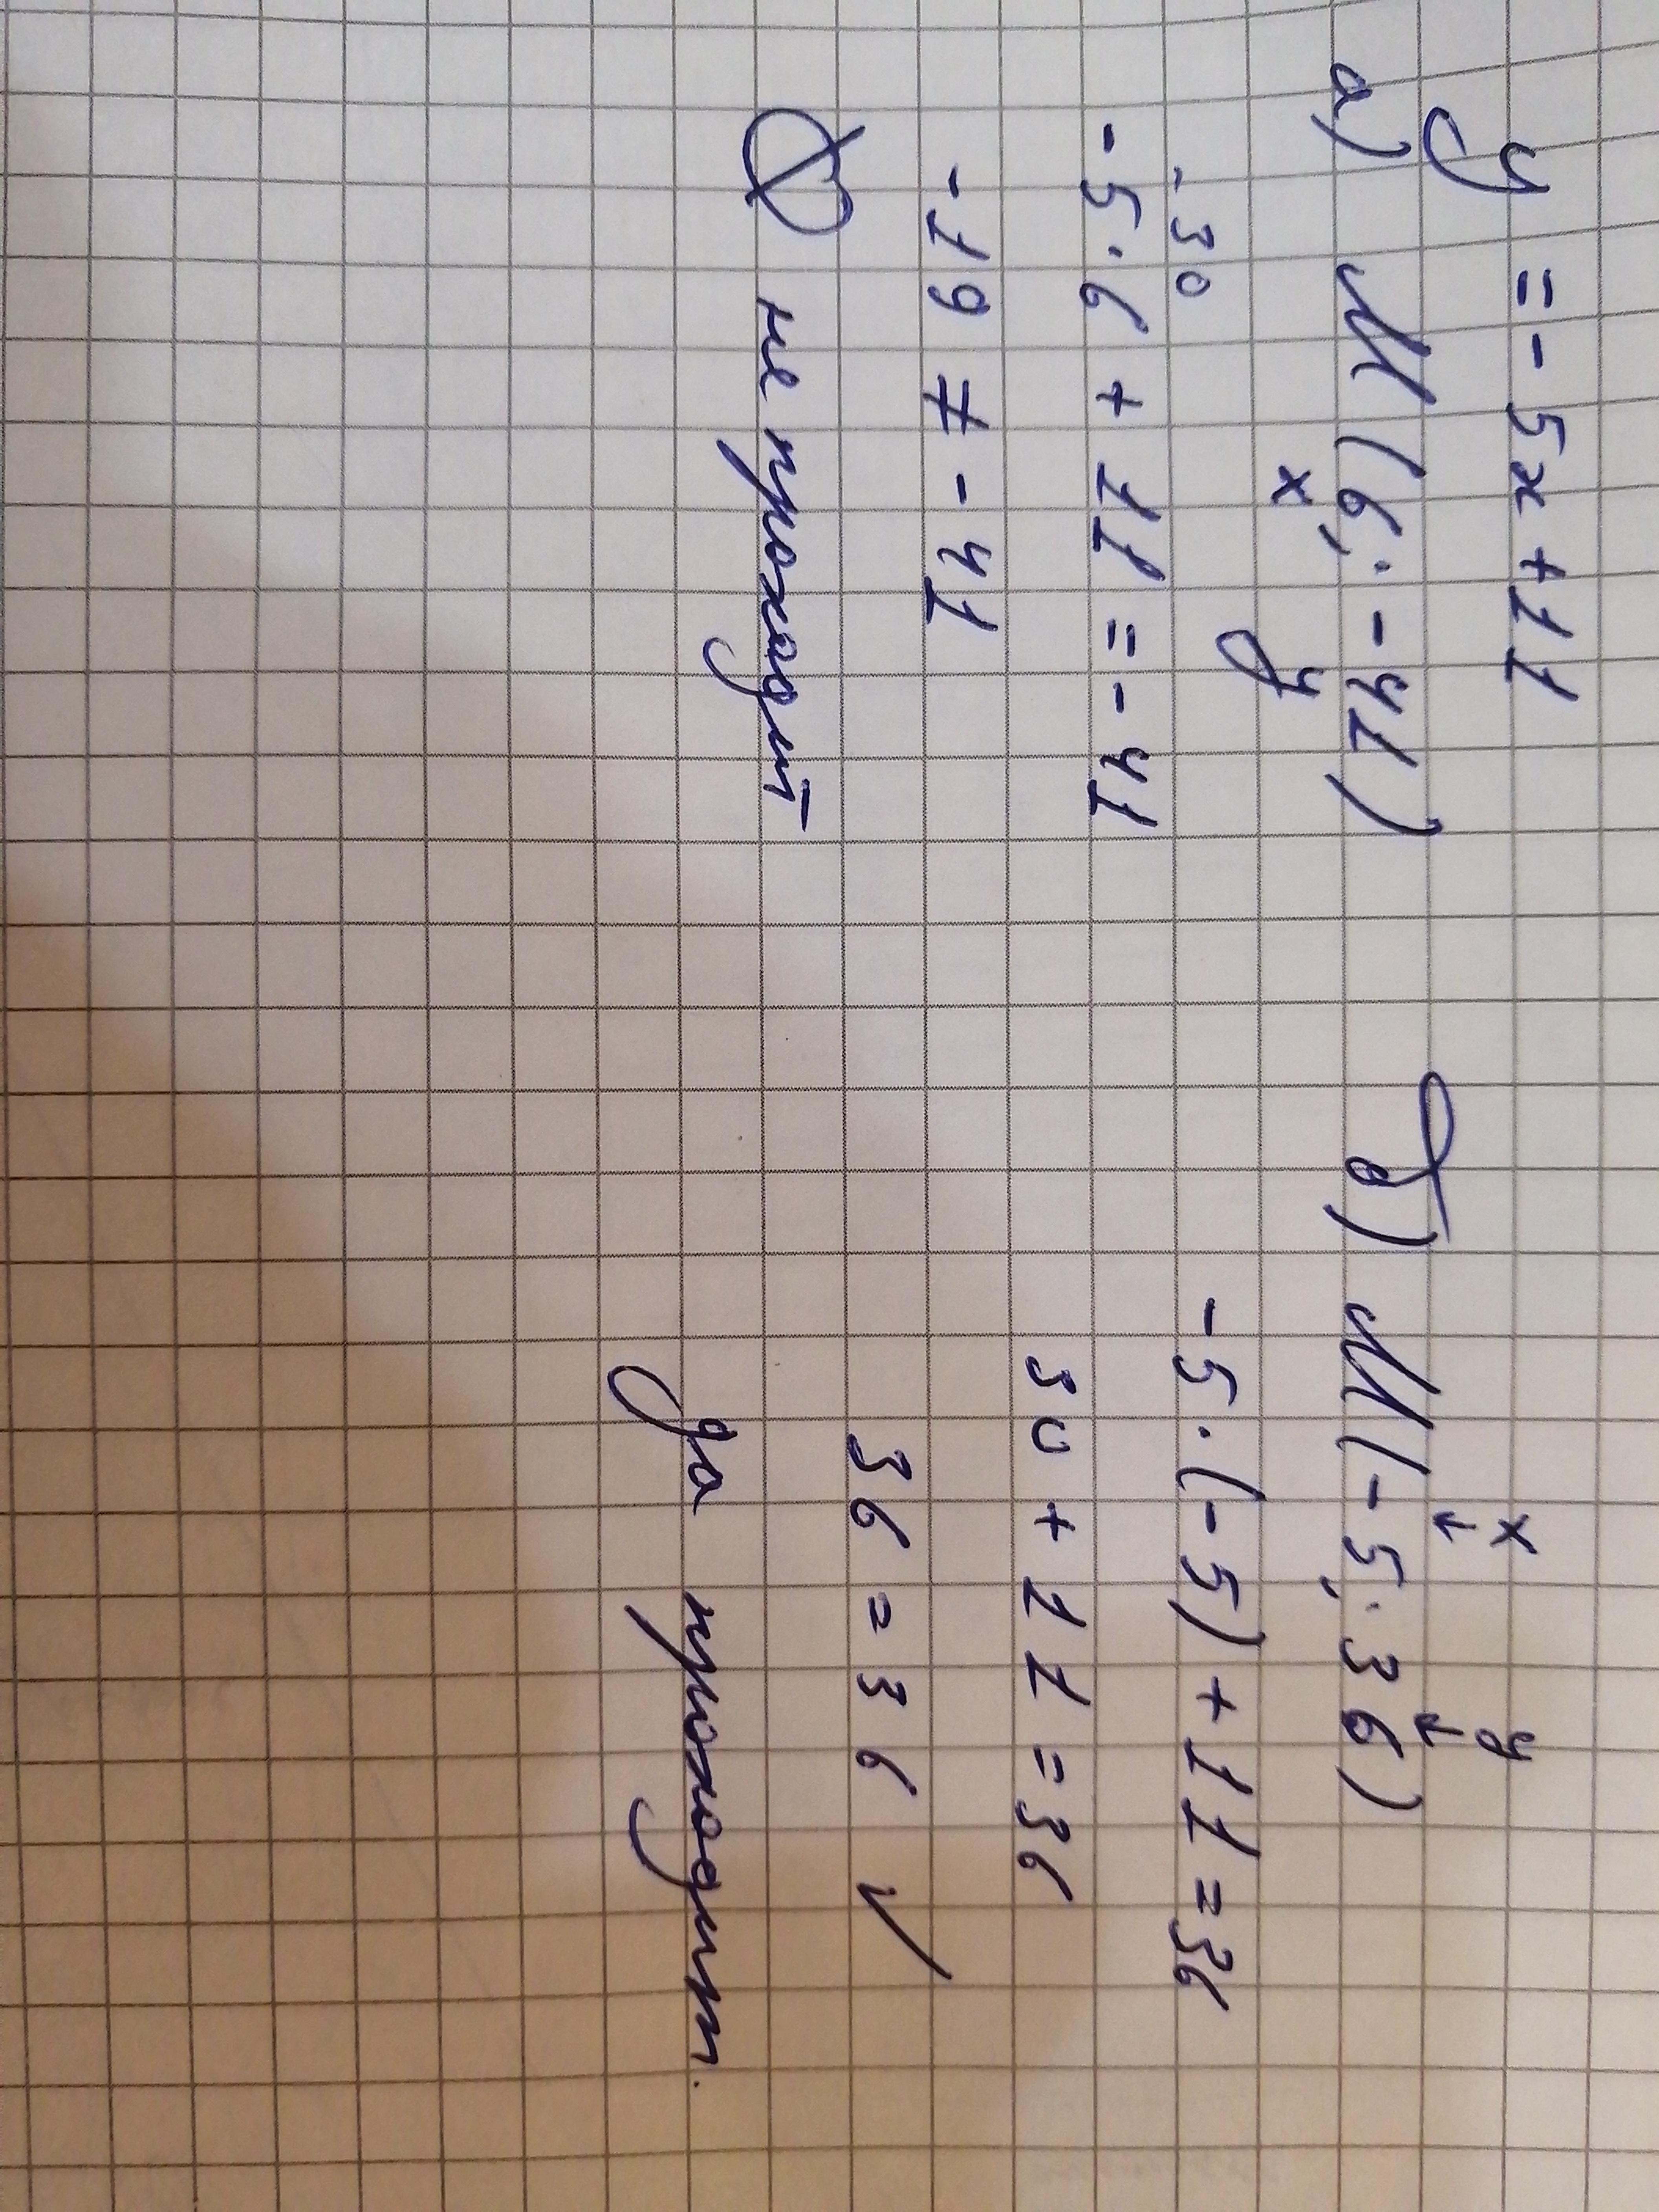 y = - 5x + 11
а) M (6; - 41)
x y
- 30
- 5 · 6 + 11 = - 41
- 19 ≠ - 41
не проходит
x y
↓ ↓
б) M (- 5; 36)
- 5 · (- 5) + 11 = 36
30 + 11 = 36
36 = 36 √
да проходит.